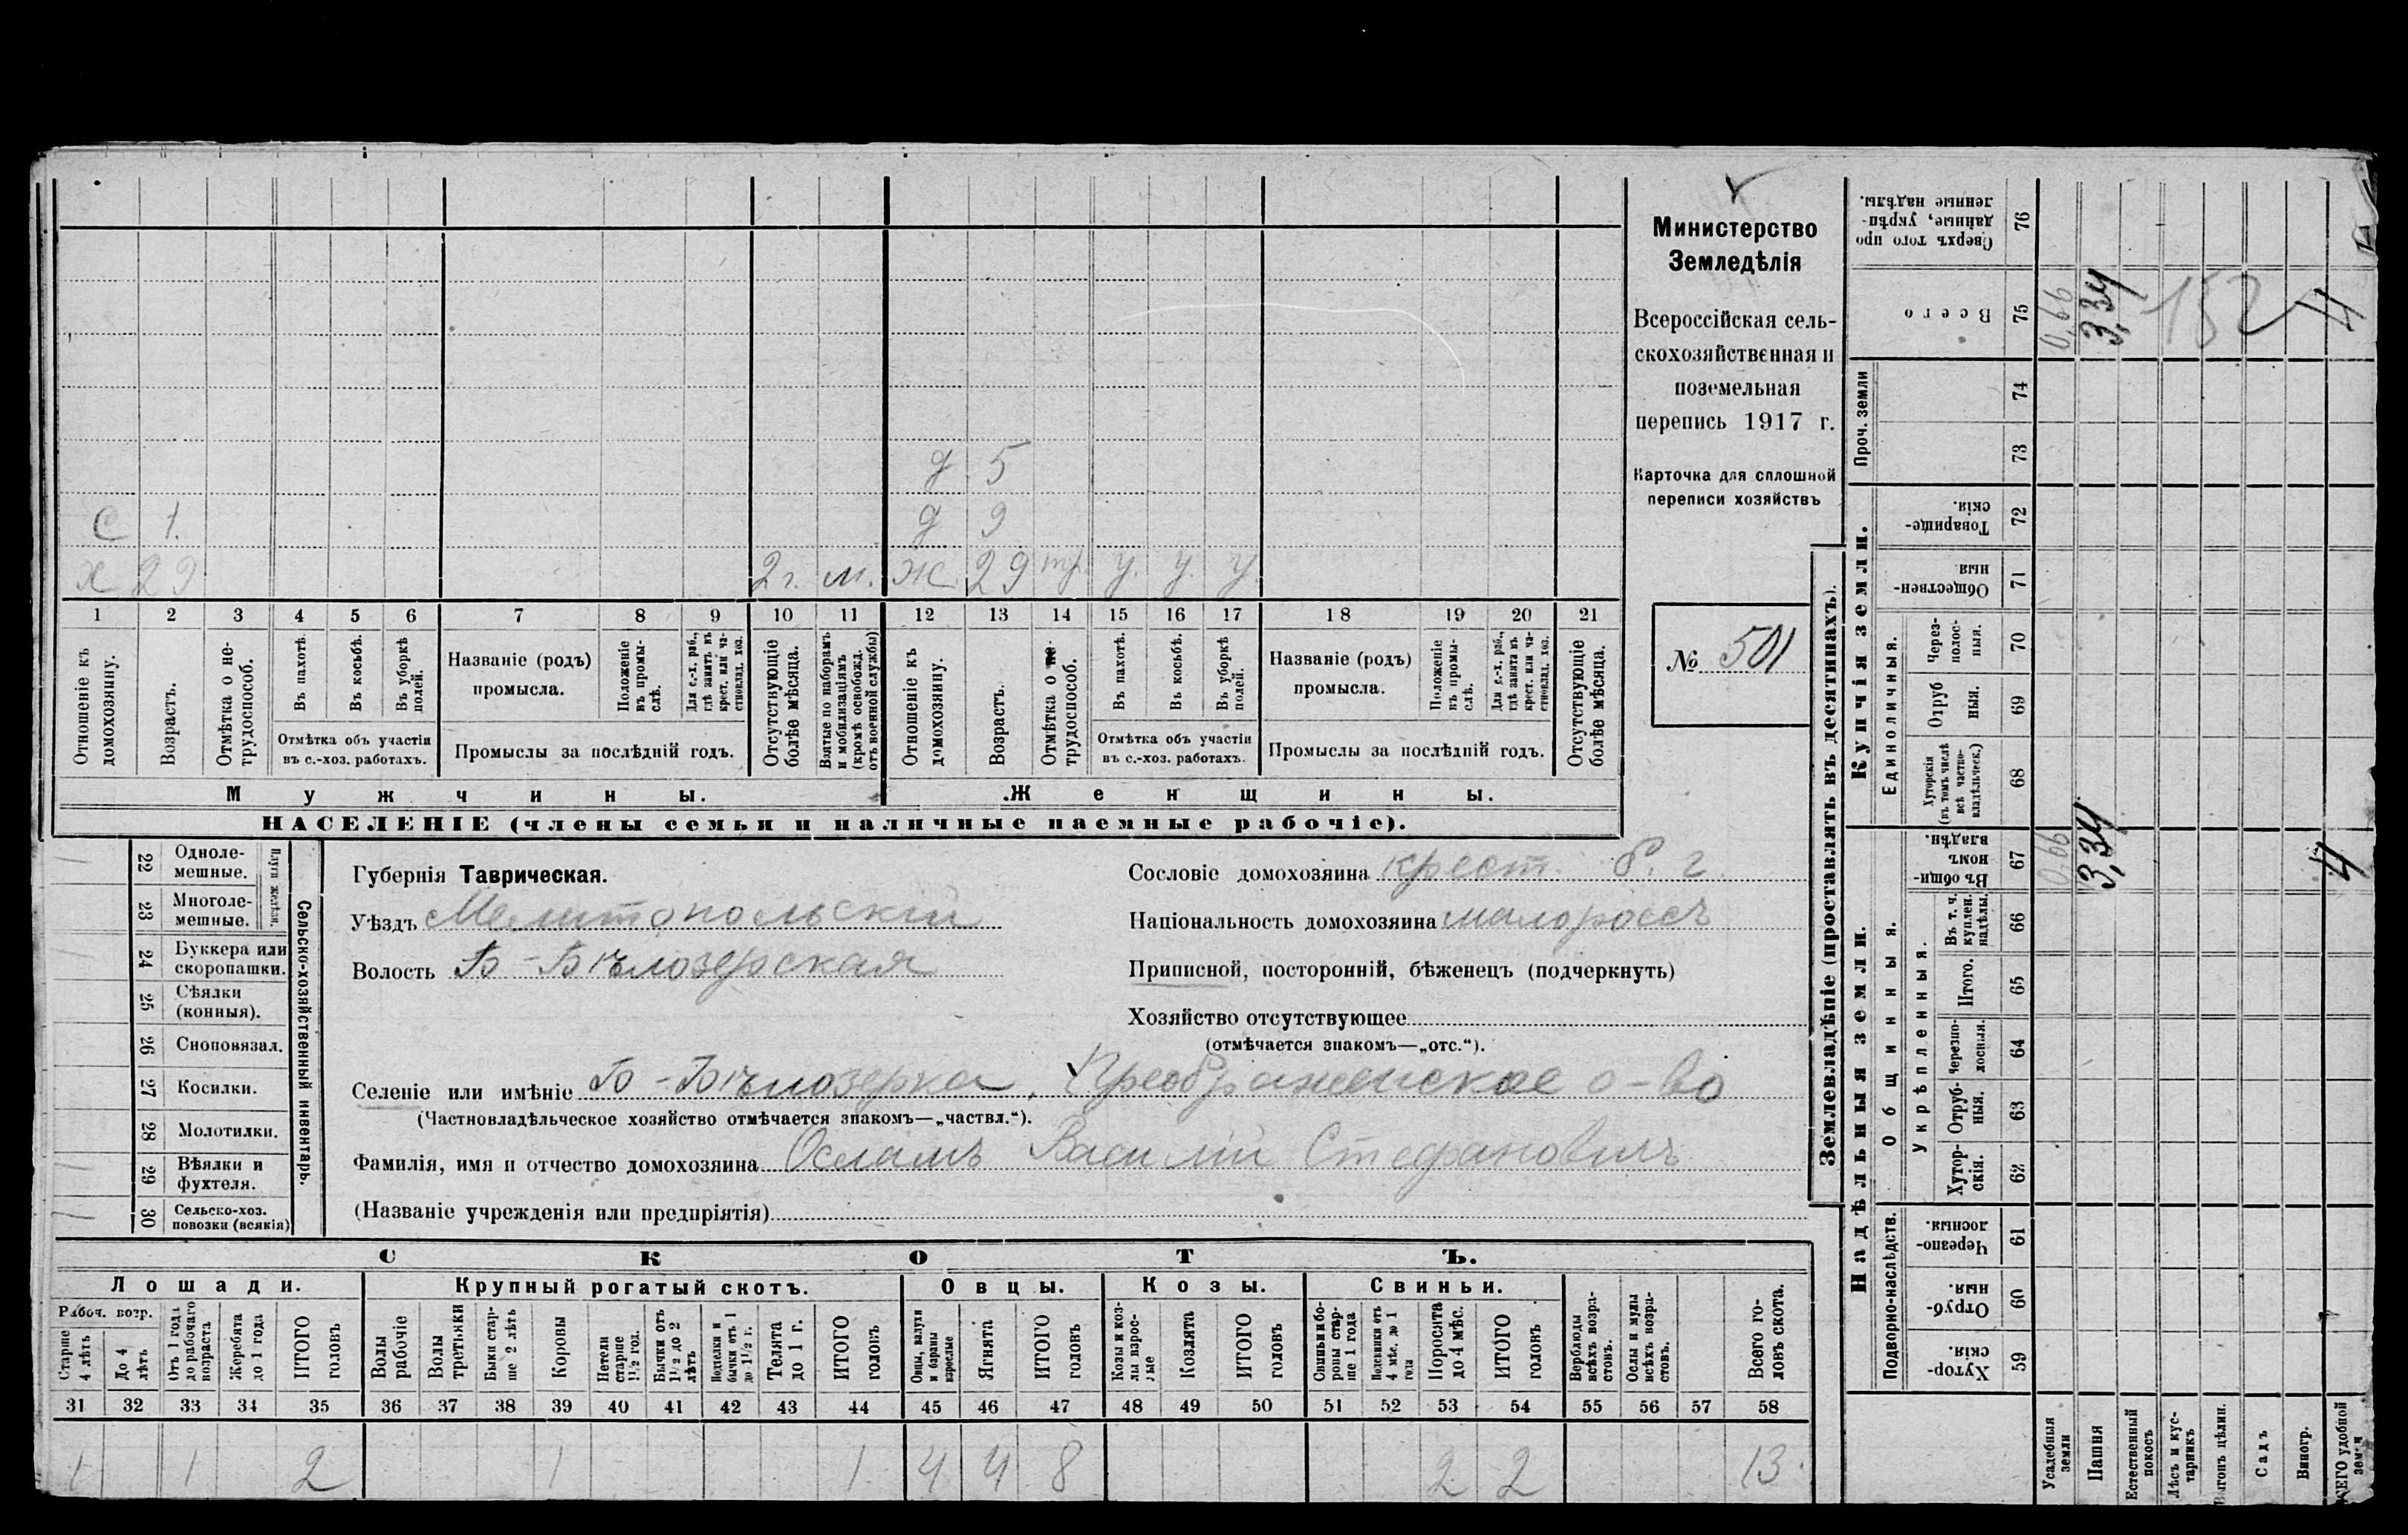 Министерство
Земледѣлія
Всероссійская сель-
скохозяйственная и
поземельная
перепись 1917 г.
Карточка для сплошной
переписи хозяйствъ
№ 501
д 5
с 1. д 9
х 29 2 г. м. ж. 29 тр. у. у. у.
1 2 3 4 5 6 7 8 9 10 11 12 13 14 15 16 17 18 19 20 21
Отношеніе къ домохозяину.
Возрастъ.
Отмѣтка о не-трудоспособ.
Въ пахотѣ.
Въ косьбѣ.
Въ уборкѣ полей.
Отмѣтка объ участіи
въ с.-хоз. работахъ.
Названіе (родъ)
промысла.
Положеніе въ промы-слѣ.
Для с.-х. раб., гдѣ занятъ въ крест. или ча-стновлад. хоз.
Промыслы за послѣдній годъ.
Отсутствующіе болѣе мѣсяца.
Взятые по наборамъ и мобилизаціямъ (кромѣ освобожд. отъ военной службы)
Отношеніе къ домохозяину.
Возрастъ.
Отмѣтка о не-трудоспособ.
Въ пахотѣ.
Въ косьбѣ.
Въ уборкѣ полей.
Отмѣтка объ участіи
въ с.-хоз. работахъ.
Названіе (родъ)
промысла.
Положеніе въ промы-слѣ.
Для с.-х. раб., гдѣ занята въ крест. или ча-стновлад. хоз.
Промыслы за послѣдній годъ.
Отсутствующіе болѣе мѣсяца.
Мужчины. Женщины.
НАСЕЛЕНІЕ (члены семьи и наличные наемные рабочіе).
Сельско-хозяйственный инвентарь.
Плуги желѣзн.
22 Одноле-мешные.
23 Многоле-мешные.
24 Буккера или скоропашки.
25 Сѣялки (конныя).
26 Сноповязал.
27 Косилки.
28 Молотилки.
29 Вѣялки и фухтеля.
30 Сельско-хоз. повозки (всякія)
Губернія Таврическая.
Уѣздъ Мелитопольскій
Волость Б-Бѣлозерская
Сословіе домохозяина крест. б. г
Національность домохозяина малороссъ
Приписной, посторонній, бѣженецъ (подчеркнуть)
Хозяйство отсутствующее
(отмѣчается знакомъ—„отс.“).
Селеніе или имѣніе Б-Бѣлозерка, Преображенское о-во
(Частновладѣльческое хозяйство отмѣчается знакомъ—„частвл.“).
Фамилія, имя и отчество домохозяина Осламъ Василій Стефановичъ
(Названіе учрежденія или предпріятія)
СКОТЪ.
Лошади. Крупный рогатый скотъ. Овцы. Козы. Свиньи.
Рабоч. возр.
Старше 4 лѣтъ
До 4 лѣтъ
Отъ 1 года до рабочаго возраста
Жеребята до 1 года
ИТОГО головъ
Волы рабочіе
Волы третьяки
Быки стар-ше 2 лѣтъ
Коровы
Нетели старше 1½ год.
Бычки отъ 1½ до 2 лѣтъ
Подтелки и бычки отъ 1 до 1½ г.
Телята до 1 г.
ИТОГО головъ
Овцы, валухи и бараны взрослые
Ягнята
ИТОГО головъ
Козы и коз-лы взрос-лые
Козлята
ИТОГО головъ
Свиньи и бо-ровы стар-ше 1 года
Подсвинки отъ 4 мѣс. до 1 года
Поросята до 4 мѣс.
ИТОГО головъ
Верблюды всѣхъ возра-стовъ.
Ослы и мулы всѣхъ возра-стовъ.
Всего го-ловъ скота.
31 32 33 34 35 36 37 38 39 40 41 42 43 44 45 46 47 48 49 50 51 52 53 54 55 56 57 58
1 1 2 1 1 4 4 8 2 2 13
Землевладѣніе (проставлять въ десятинахъ).
Надѣльныя земли. Купчія земли. Проч. земли
Подворно-наслѣдств.
Общинныя.
Укрѣпленныя.
Единоличныя.
Сверхъ того про-данные, укрѣп-ленные надѣлы. 76
Всего 75
74
73
Товарище-скія. 72
Обществен-ныя 71
Через-полос-ныя. 70
Отруб-ныя. 69
Хуторскія (въ томъ числѣ всѣ частно-владѣльческ.) 68
Въ общи-номъ владѣн. 67
Въ т. ч. куплен. надѣлы. 66
Итого. 65
Черезпо-лосныя. 64
Отруб-ныя. 63
Хутор-скія. 62
Черезпо-лосныя. 61
Отруб-ныя. 60
Хутор-скія. 59
0,66 3,34 152 4
0,66 3,34 4
Усадебныя земли
Пашня
Естественный покосъ
Лѣсъ и кус-тарникъ
Выгонъ цѣлин.
Садъ
Виногр.
ВСЕГО удобной земли